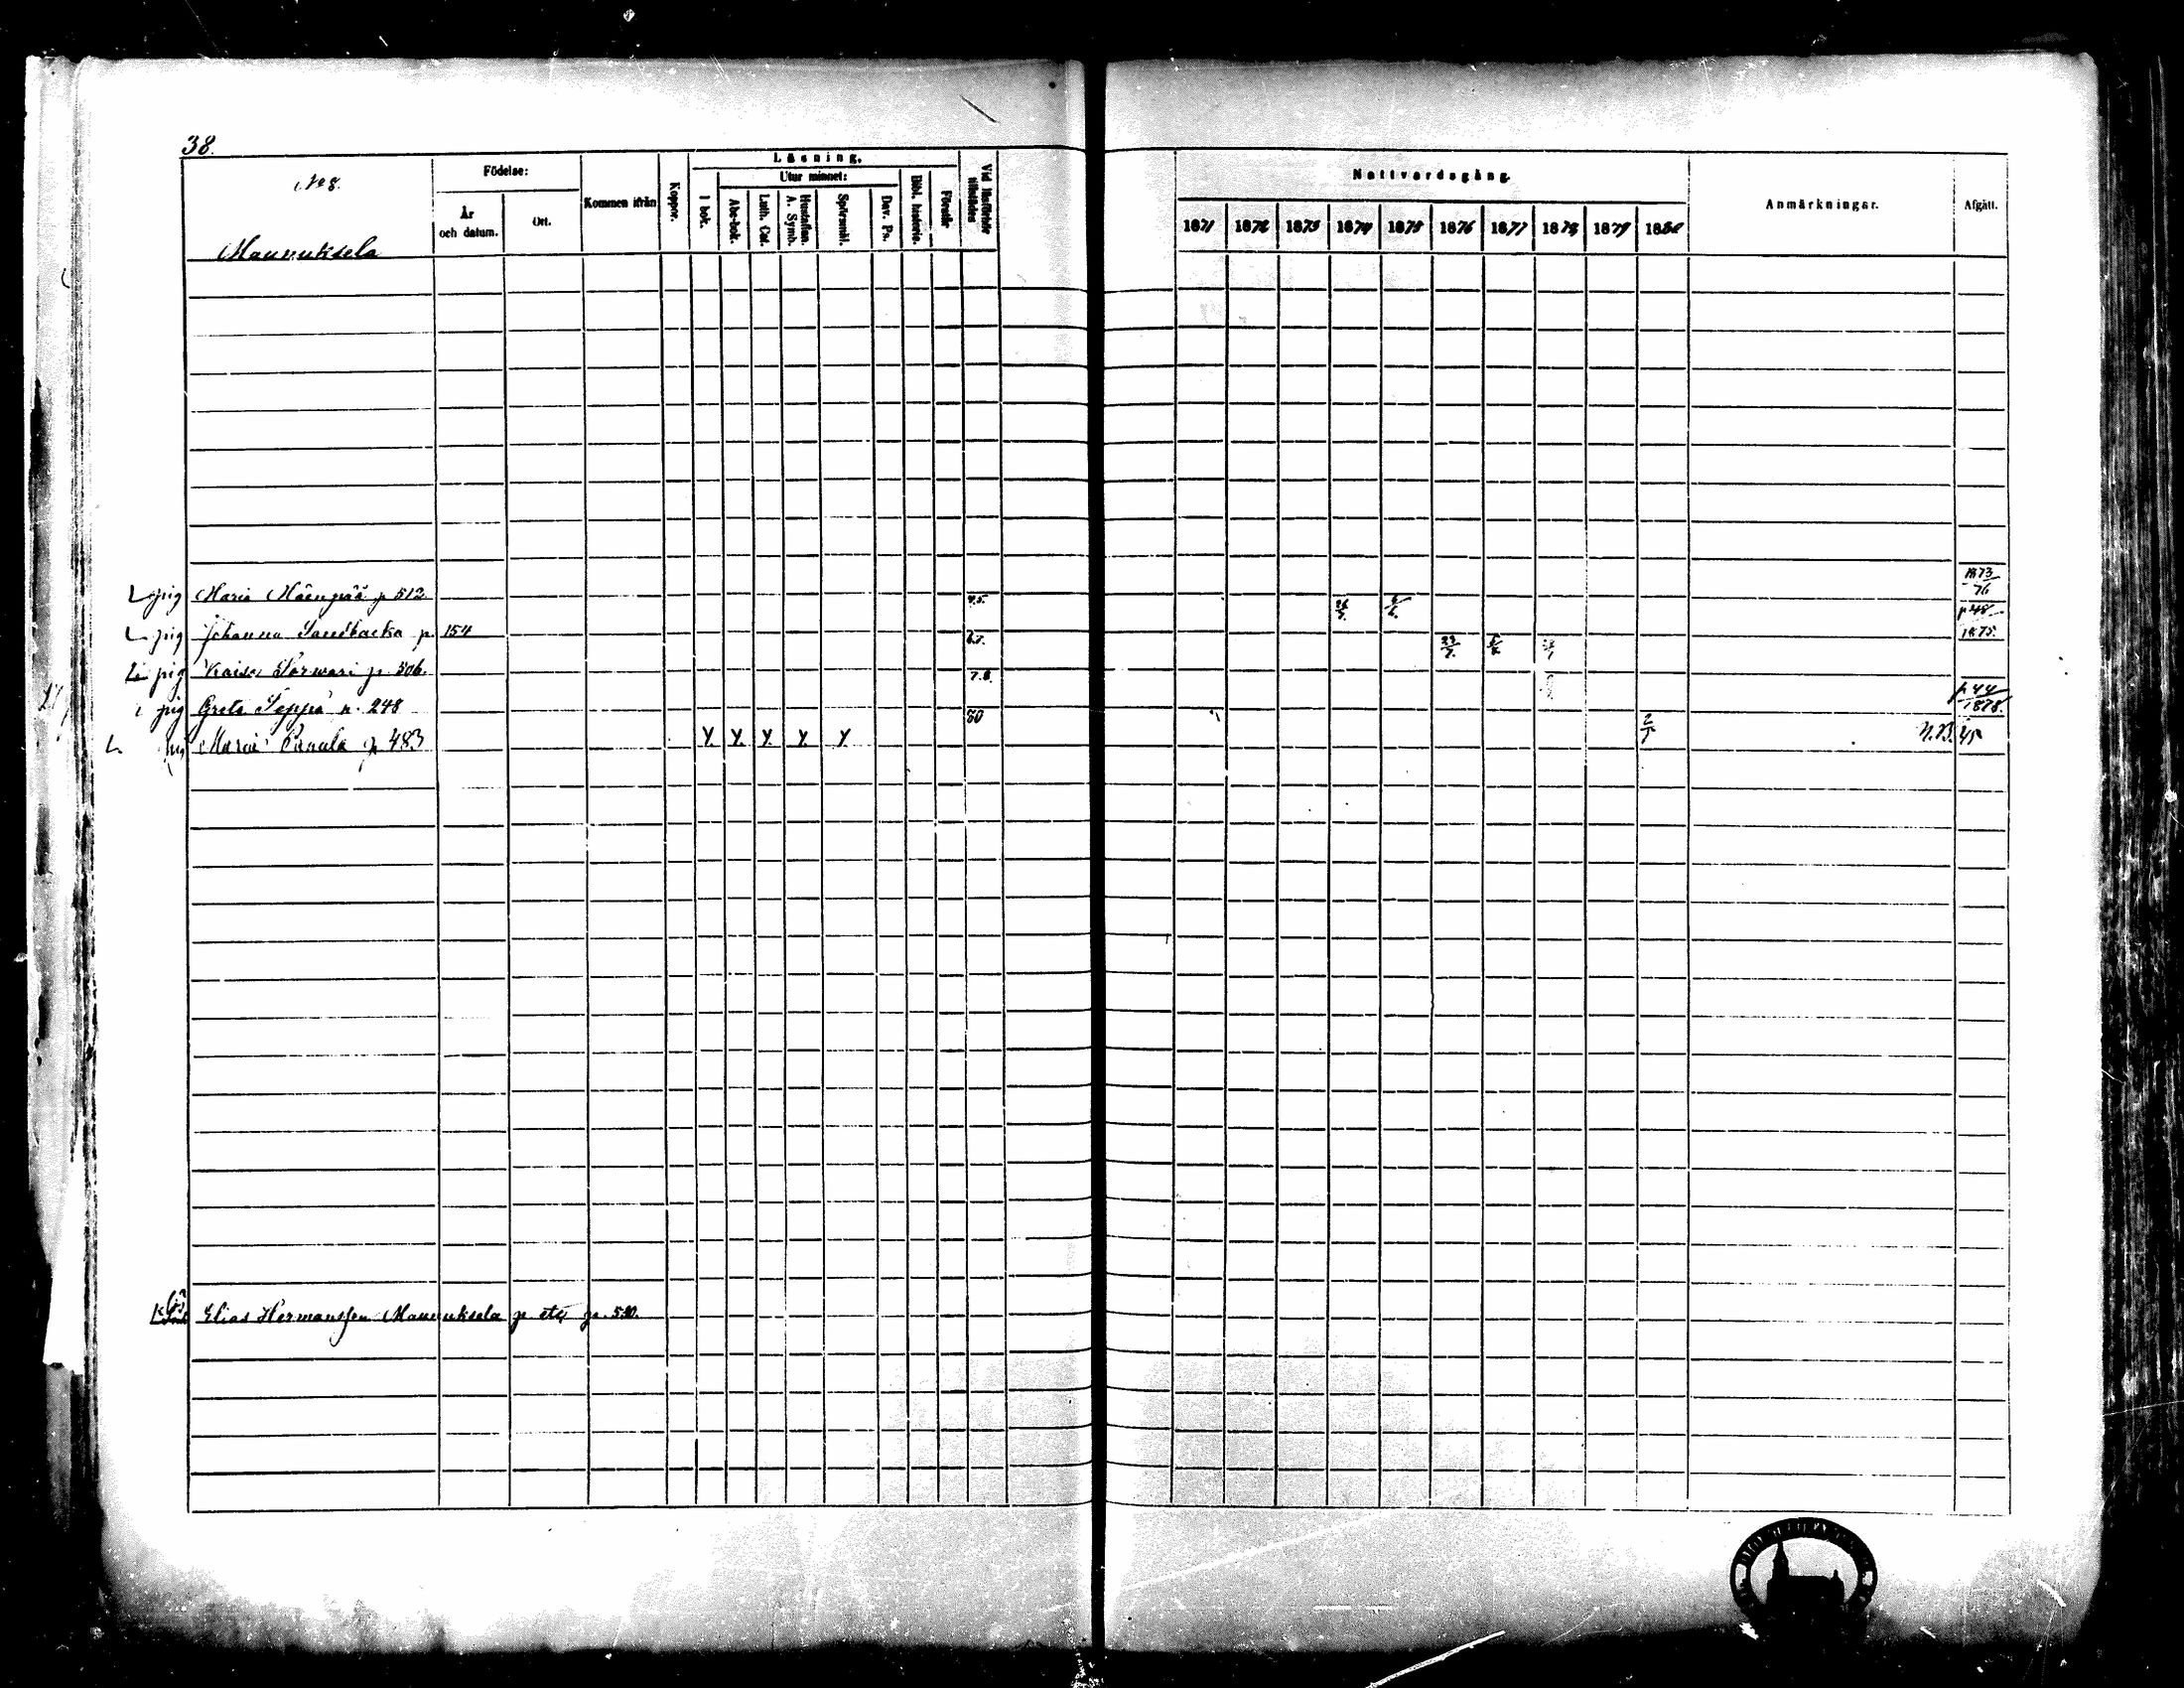 38.
No 8.
Maunuksela
Födelse:
År och datum.
Ort.
Kommen ifrån
Koppor.
Läsning.
I bok.
Utur minnet:
Abc-bok.
Luth. Cat.
Hustaflan. A. Symb.
Spörsmål.
Dav. Ps.
Bibl. historie.
Förstår
Vid läsförhör tillstädes
Nattvardsgång.
1871 1872 1873 1874 1875 1876 1877 1878 1879 1880
Anmärkningar.
Afgått.
pig Maria Mäenpää p 512 4.5. 1873/76
pig Johanna Sandbacka p. 154 6.7. p 48 1875.
pig Kaisa p. 306. 7.8.
pig Greta Seppä p. 248 80 p 44/1878.
Maria Panula p 483 y. y. y. y. y. 2/5 N.B. 45
Elias Hermansson Maunuksela p. 530.